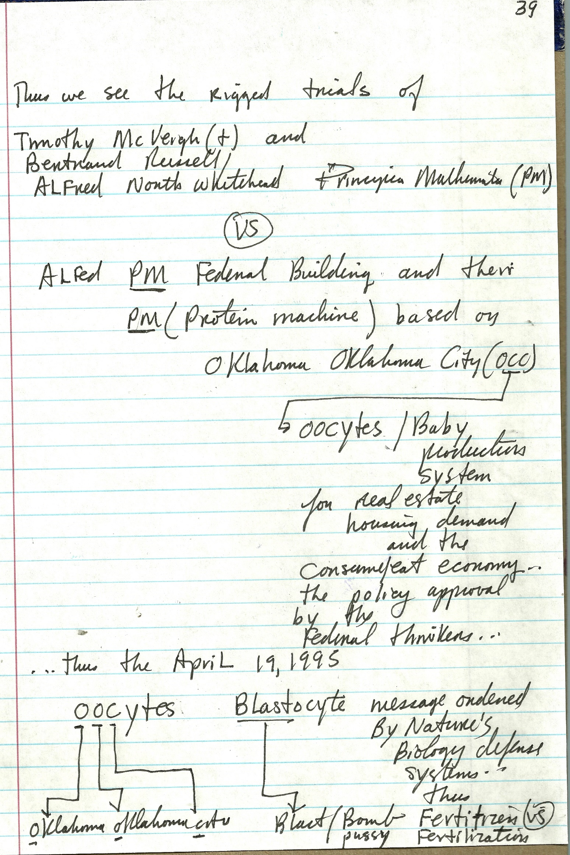 39
Thus we see the rigged trials of
Timothy McVeigh (+) and
Bertrand Russell/
ALFred North Whitehead Principia Mathematica (PM)
VS
ALFed PM Federal Building and their
PM (Protein machine) based on
OKlahoma OKlahoma City (OCC)
oocytes / Baby
production
system
for real estate
housing demand
and the
consume/eat economy...
the policy approval
by the
Federal thinkers...
...thus the April 19, 1995
oocytes Blastocyte message ordered
By Nature's
Biology defense
systems...
thus
OKlahoma oKlahoma city Blast/Bomb Fertilizer VS
pussy Fertilization